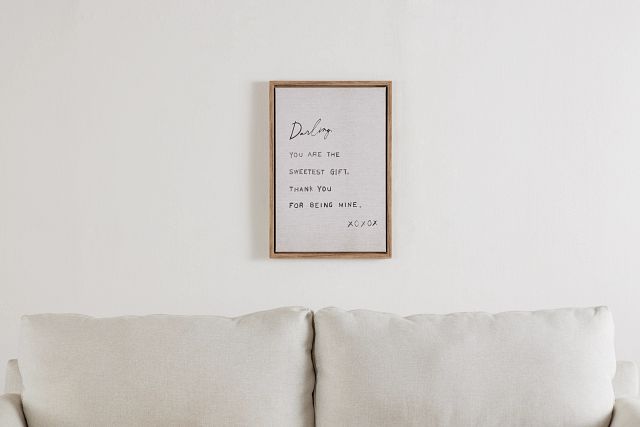 Darling,
YOU ARE THE
SWEETEST GIFT.
THANK YOU
FOR BEING MINE.
XOXOX